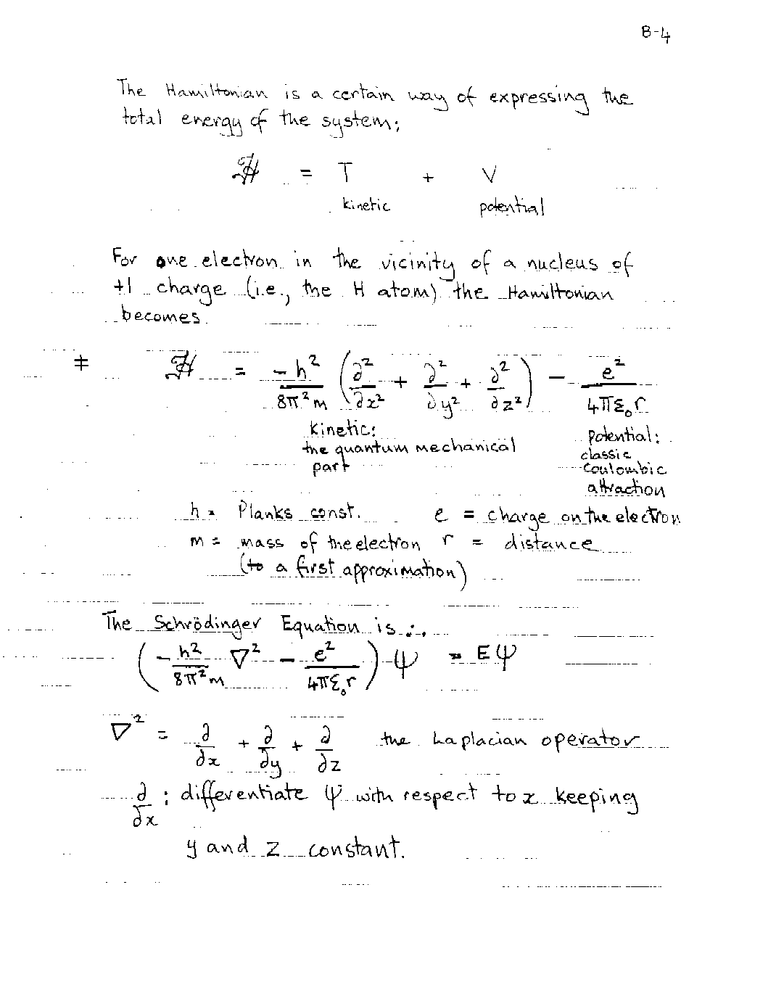 B-4
The Hamiltonian is a certain way of expressing the
total energy of the system;
ℋ = T + V
kinetic potential
For one electron in the vicinity of a nucleus of
+1 charge (i.e., the H atom) the Hamiltonian
becomes
‡ ℋ = -h²/8π²m (∂²/∂x² + ∂²/∂y² + ∂²/∂z²) - e²/4πε₀r
kinetic: the quantum mechanical part
potential: classic Coulombic attraction
h = Planks const. e = charge on the electron
m = mass of the electron r = distance
(to a first approximation)
The Schrödinger Equation is ∴
(-h²/8π²m ∇² - e²/4πε₀r) ψ = Eψ
∇² = ∂/∂x + ∂/∂y + ∂/∂z the Laplacian operator
∂/∂x ; differentiate ψ with respect to x keeping
y and z constant.